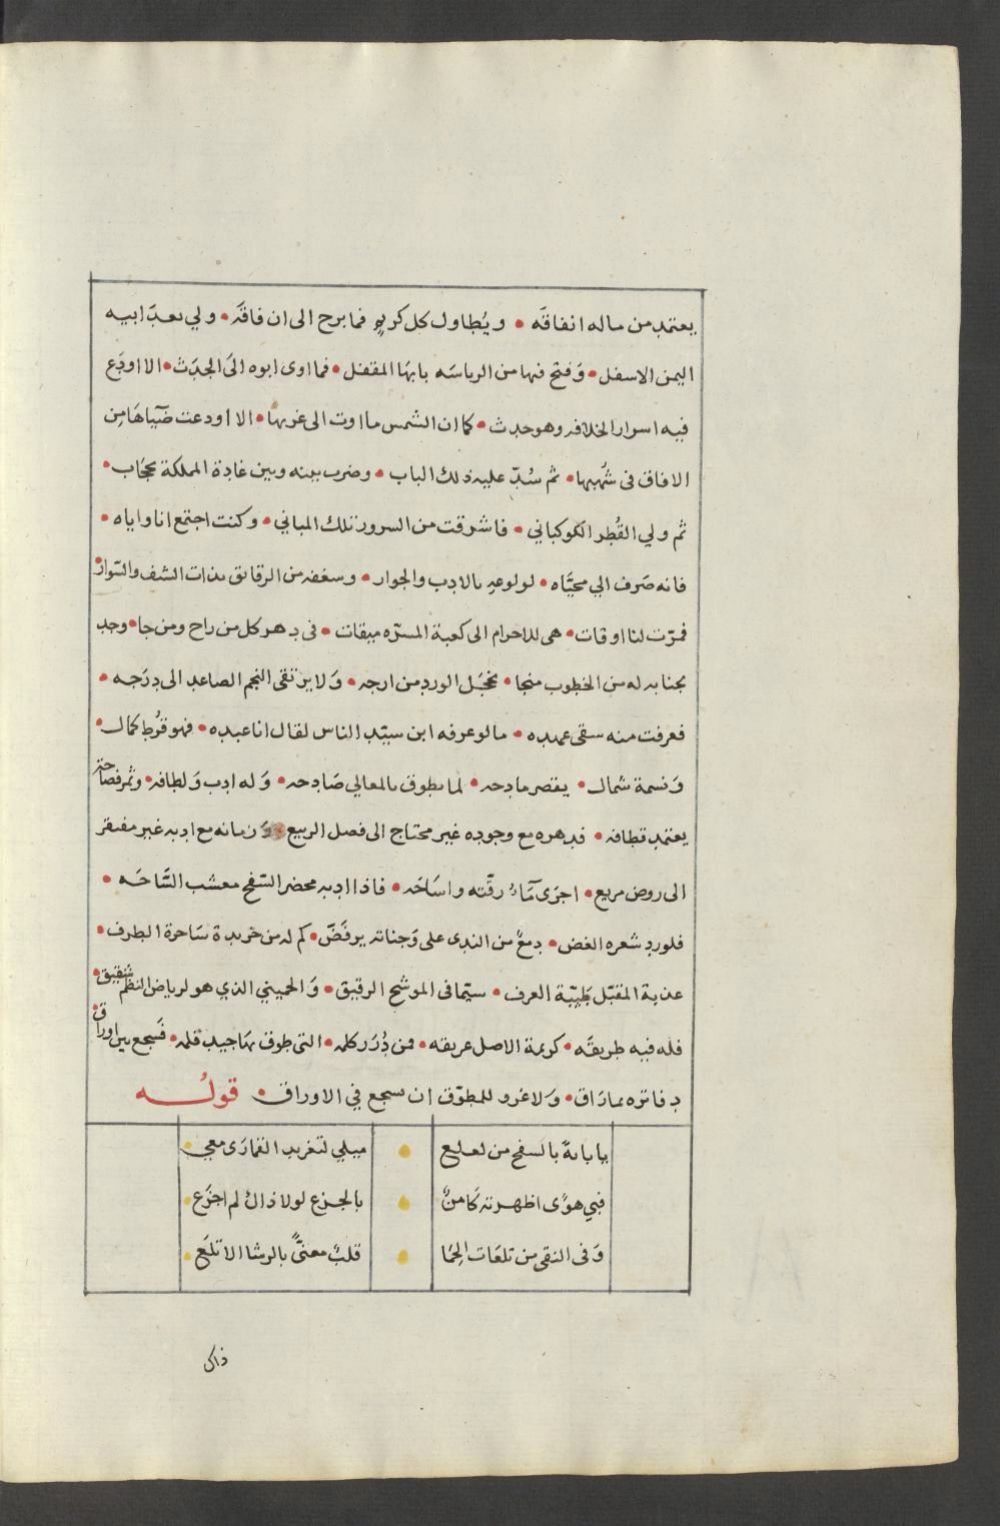 يعتمد من ماله انفاقَه • ويُطاول كل كريم فما برح الى ان فاقَه • ولي بعدَ ابيه
اليمن الاسفل • وَفتح فيها من الرياسَه بابهَا المقفل • فما اوى ابوه الىَ الجدَث • الا اودَع
فيه اسرار الخلافه وهو حدث • كما ان الشمس ما اوت الى غربهَا • الا اودعت ضيَاهَا من
الافاق فى شُهبها • ثم سُدّ عليه ذلك الباب • وضرب بينه وبين غادة المملكة بحجَاب •
ثم ولي القُطر الكَوكباني • فاشرقت من السرور تلك المباني • وكنت اجتمع انا واياه •
فانه صَرف الي محيَّاه • لولوعه بالادب والجوار • وشغفه من الرقايق بذات الشنف والسّوار •
فمرّت لنا اوقات • هى للاحرام الى كعبة المسرّه ميقات • فى دهر كل من راح ومن جا • وجد
بجنابه له من الخطوب منجا • يخجَل الورد من ارجه • وَلا يرتقى النجم الصاعد الى درَجه •
فعرفت منه سقى عهده • ما لو عرفه ابن سيّد الناس لقال انا عبده • فهو قُرط كمال •
وَنسمة شمال • يقصر مادحه • لما يطوق بالمعالي صَادحه • وَله ادب وَلطافه • وثمر فصاحته
يعتمد قطافه • فدهره مع وجوده غير محتاج الى فصل الربيع • وَزمانه مع ادبه غير مفتقر
الى روض مريع • اجرَى مَآءُ رقّته واسَاحَه • فاذا ادبه محضر السّفح معشب السَّاحَه •
فلورد شعره الغض • دمعٌ من الندى على وَجناته يرفَضّ • كم له من خريدة سَاحرة الطرف •
عذبة المقبّل طيّبة العرف • سيّما فى الموشح الرقيق • وَالحميني الذي هو لرياض النظم شقيق •
فله فيه طريقَه • كريمة الاصل عريقه • فمن دُرَر كلمه • التى طوق بهَا جيد قلمه • فسَجع بين اوراق •
دفاتره بما رَاق • وَلا غرو للمطوّق ان يسجع في الاوراق • قولُه
يا بانةً بالسفح من لعلع • ميلي لتغريد القمارَى معي •
فبي هوًى اظهرته كَامنٌ • بالجزع لولا ذاك لم اجزَع •
وَفى النقى من تلعَات الحِمَا • قلبٌ معنىًّ بالرشا الاتلَع •
ذاك